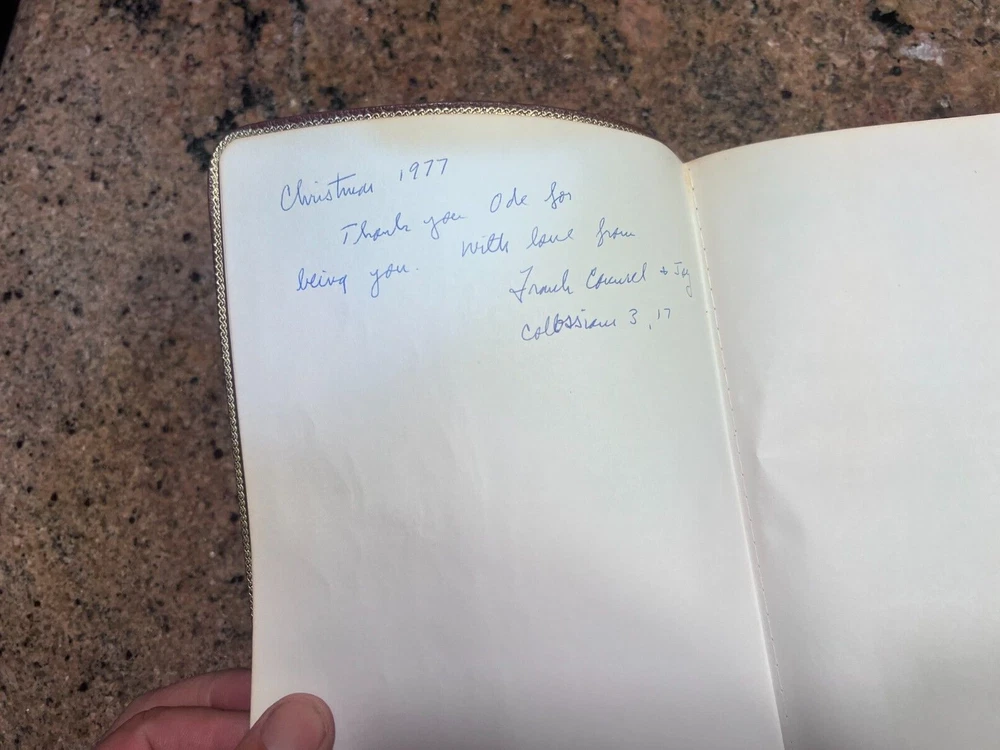 Christmas 1977
Thank you Ode for
being you. With love from
Frank Counsel + Joy
Colossians 3, 17